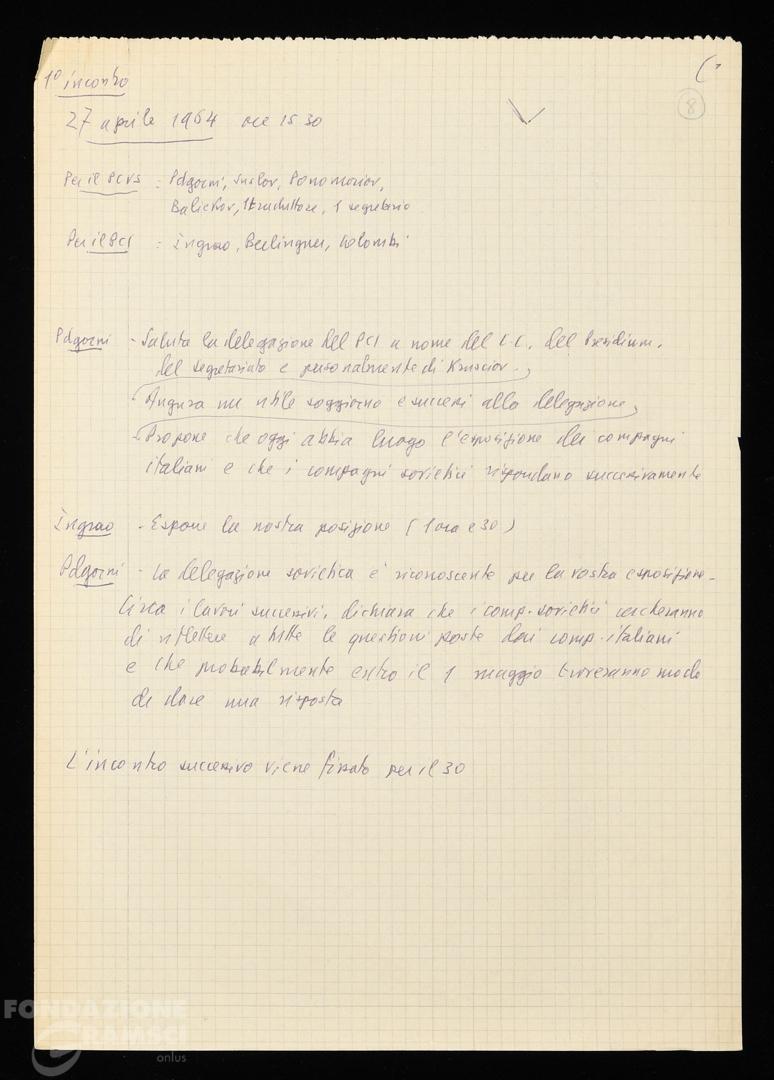 1° incontro
8
27 aprile 1964 ore 15 30
Per il PCUS : Pdgorni, Suslov, Ponomariov,
Balickov, 1 traduttore, 1 segretario
Per il PCI : Ingrao, Berlinguer, Colombi
Pdgorni - Saluta la delegazione del PCI a nome del C.C. del Presidium,
del segretariato e personalmente di Krusciov.
- Augura un utile soggiorno e successi alla delegazione
- Propone che oggi abbia luogo l'esposizione dei compagni
italiani e che i compagni sovietici rispondano successivamente
Ingrao - Espone la nostra posizione (1 ora e 30)
Pdgorni - La delegazione sovietica è riconoscente per la vostra esposizione.
Circa i lavori successivi, dichiara che i comp. sovietici cercheranno
di riflettere a tutte le questioni poste dai comp. italiani
e che probabilmente entro il 1 maggio troveranno modo
di dare una risposta
L'incontro successivo viene fissato per il 30
FONDAZIONE
GRAMSCI
onlus